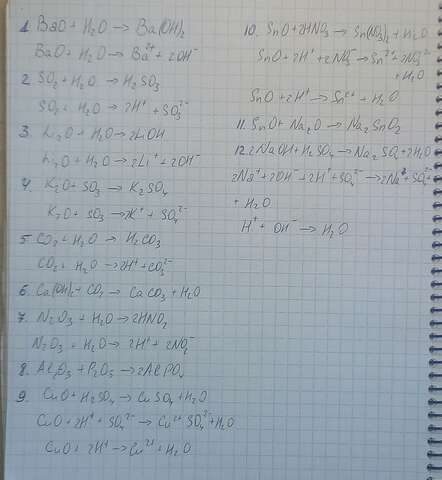 1. BaO + H₂O → Ba(OH)₂
BaO + H₂O → Ba²⁺ + 2OH⁻
2. SO₂ + H₂O → H₂SO₃
SO₂ + H₂O → 2H⁺ + SO₃²⁻
3. Li₂O + H₂O → 2LiOH
Li₂O + H₂O → 2Li⁺ + 2OH⁻
4. K₂O + SO₃ → K₂SO₄
K₂O + SO₃ → 2K⁺ + SO₄²⁻
5. CO₂ + H₂O → H₂CO₃
CO₂ + H₂O → 2H⁺ + CO₃²⁻
6. Ca(OH)₂ + CO₂ → CaCO₃ + H₂O
7. N₂O₃ + H₂O → 2HNO₂
N₂O₃ + H₂O → 2H⁺ + 2NO₂⁻
8. Al₂O₃ + P₂O₅ → 2AlPO₄
9. CuO + H₂SO₄ → CuSO₄ + H₂O
CuO + 2H⁺ + SO₄²⁻ → Cu²⁺ SO₄²⁻ + H₂O
CuO + 2H⁺ → Cu²⁺ + H₂O
10. SnO + 2HNO₃ → Sn(NO₃)₂ + H₂O
SnO + 2H⁺ + 2NO₃⁻ → Sn²⁺ + 2NO₃²⁻
+ H₂O
SnO + 2H⁺ → Sn²⁺ + H₂O
11. SnO + Na₂O → Na₂SnO₂
12. 2NaOH + H₂SO₄ → Na₂SO₄ + 2H₂O
2Na⁺ + 2OH⁻ + 2H⁺ + SO₄²⁻ → 2Na⁺ + SO₄²⁻
+ H₂O
H⁺ + OH⁻ → H₂O